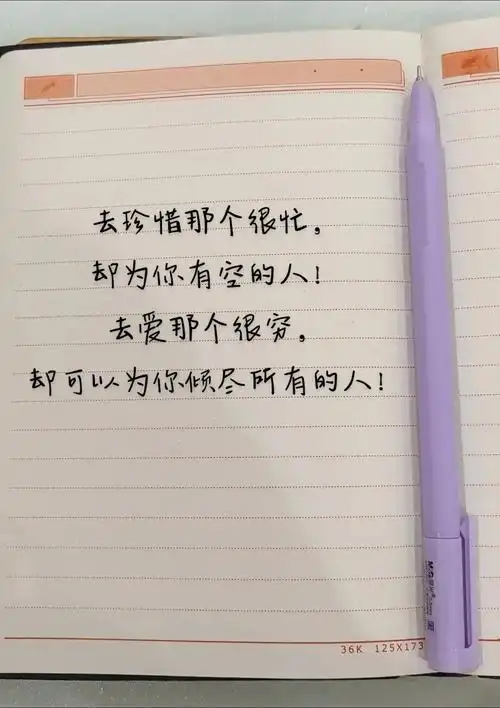 去珍惜那个很忙，
却为你有空的人！
去爱那个很穷，
却可以为你倾尽所有的人！
36K 125X173